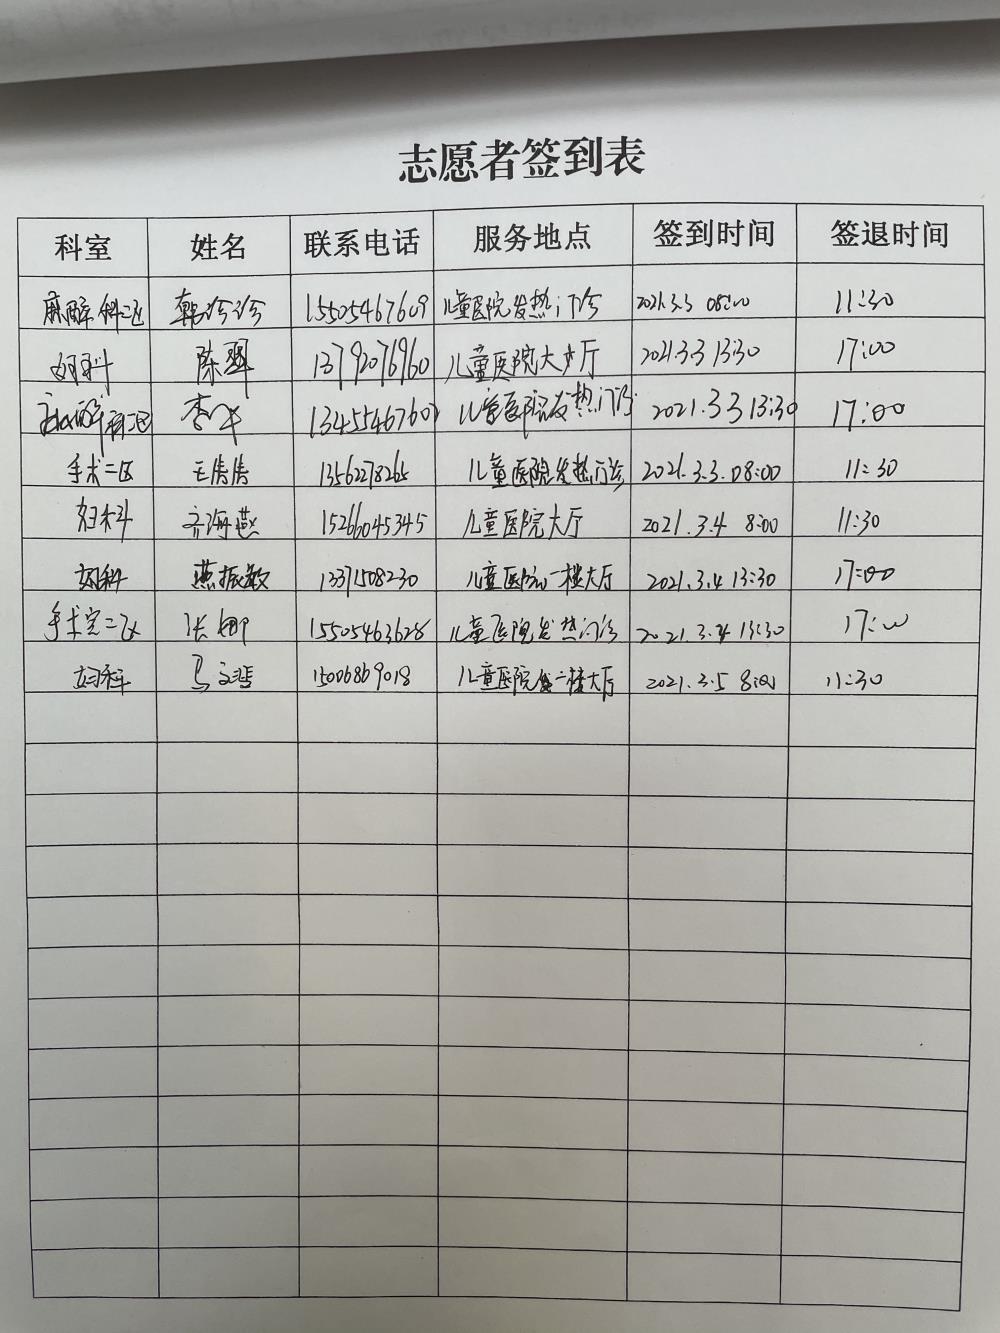 志愿者签到表
科室 姓名 联系电话 服务地点 签到时间 签退时间
麻醉科二区 韩诊诊 15505467609 儿童医院发热门诊 2021.3.3 08:00 11:30
妇科 陈 13792076960 儿童医院大厅 2021.3.3 13:30 17:00
麻醉科二区 李 儿童医院发热门诊 2021.3.3 13:30 17:00
手术二区 王倩倩 13562278265 儿童医院发热门诊 2021.3.3. 08:00 11:30
妇科 齐海燕 15266045345 儿童医院大厅 2021.3.4 8:00 11:30
妇科 燕振敏 13371508230 儿童医院一楼大厅 2021.3.4 13:30 17:00
手术室二区 张娜 15505463628 儿童医院发热门诊 2021.3.4 13:30 17:00
妇科 马文 15006869018 儿童医院 一楼大厅 2021.3.5 8:00 11:30